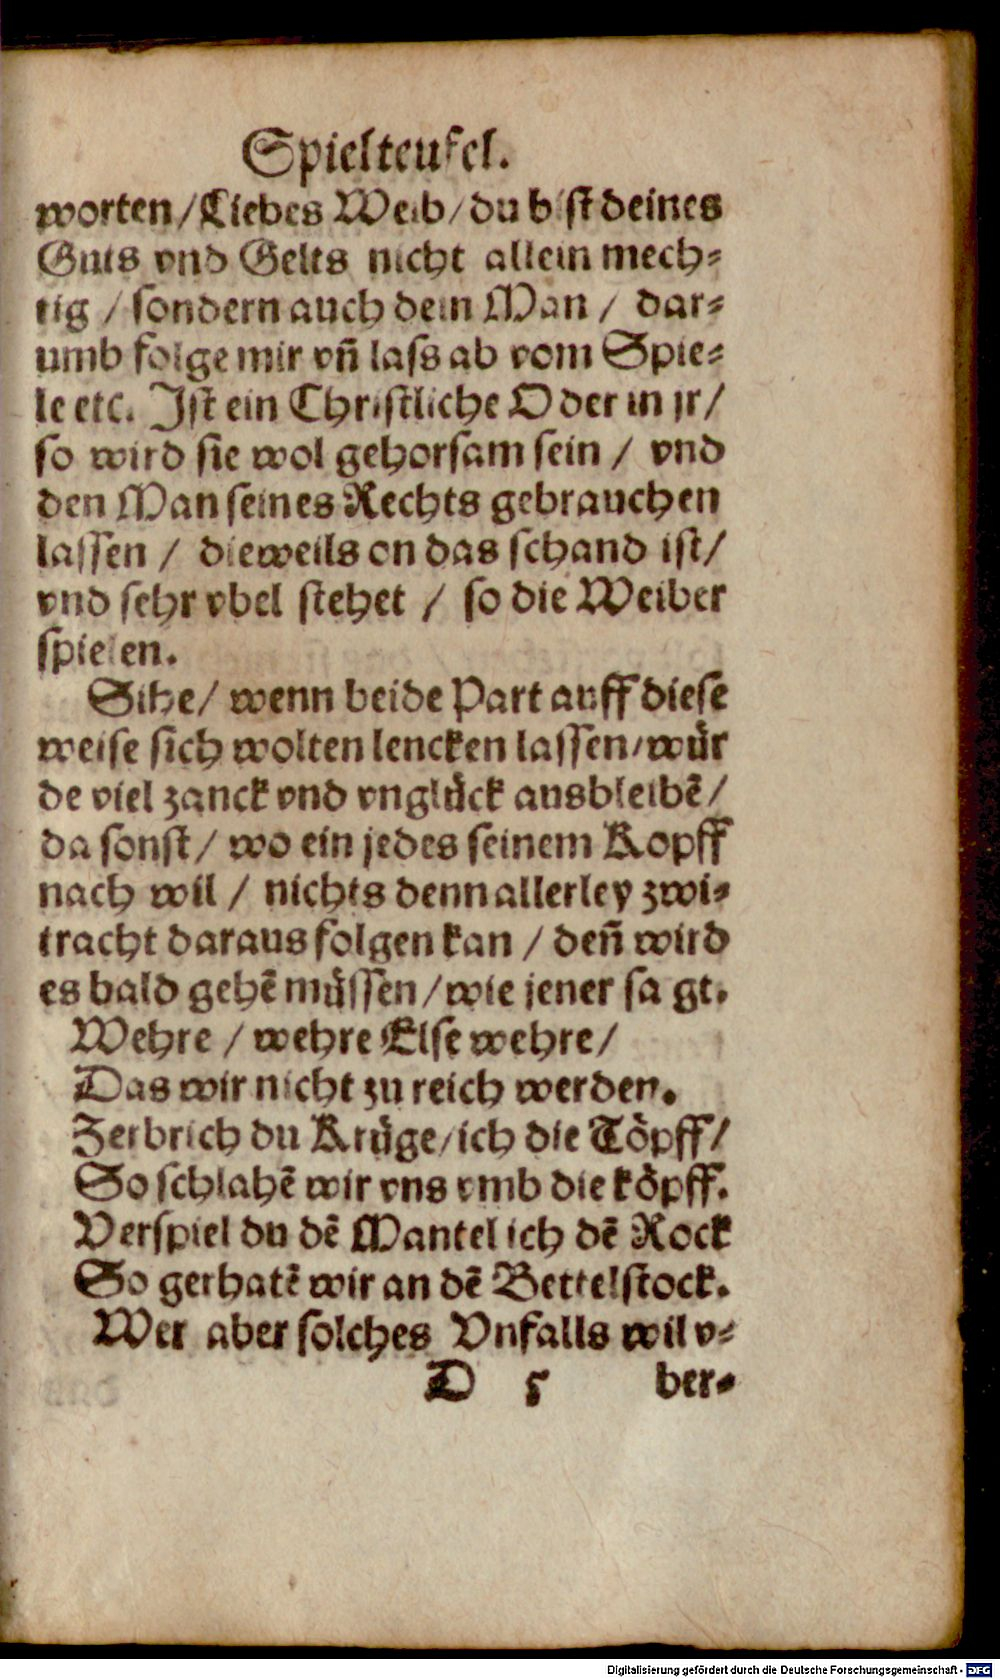 Spielteufel.
worten/Liebes Weib/du bist deines
Guts vnd Gelts nicht allein mech⸗
tig / sondern auch dein Man / dar⸗
umb folge mir vñ lass ab vom Spie⸗
le etc. Ist ein Christliche Oder in jr/
so wird sie wol gehorsam sein / vnd
den Man seines Rechts gebrauchen
lassen / dieweils on das schand ist/
vnd sehr vbel stehet / so die Weiber
spielen.
Sihe/ wenn beide Part auff diese
weise sich wolten lencken lassen/wuͤr
de viel zanck vnd vngluͤck ausbleibẽ/
da sonst/ wo ein jedes seinem Kopff
nach wil / nichts denn allerley zwi⸗
tracht daraus folgen kan / deñ wird
es bald gehẽ muͤssen/wie jener sagt.
Wehre / wehre Else wehre/
Das wir nicht zu reich werden.
Zerbrich du Kruͤge/ich die Toͤpff/
So schlahẽ wir vns vmb die koͤpff.
Verspiel du dẽ Mantel ich dẽ Rock
So gerhatẽ wir an dẽ Bettelstock.
Wer aber solches Vnfalls wil v⸗
D 5 ber⸗
Digitalisierung gefördert durch die Deutsche Forschungsgemeinschaft - DFG